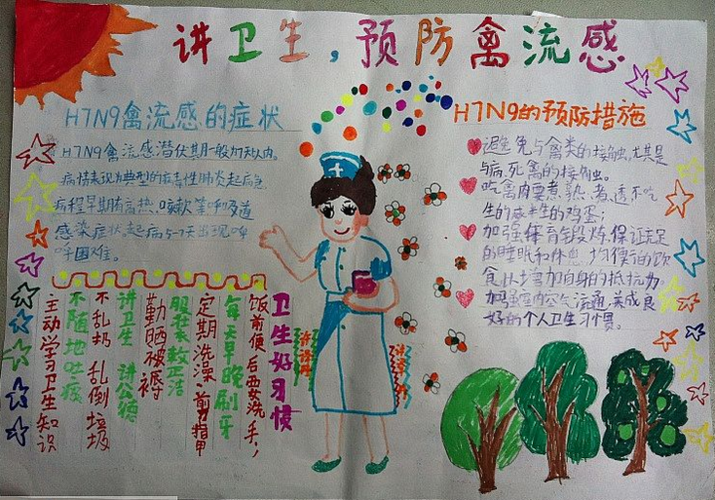 讲卫生，预防禽流感
H7N9禽流感的症状
H7N9禽流感潜伏期一般为7天以内。
病情表现为典型的病毒性肺炎起病急
病程早期有高热、咳嗽等呼吸道
感染症状，起病5-7天出现呼
呼困难。
H7N9的预防措施
避免与禽类的接触，尤其是
与病、死禽的接触。
吃禽肉要煮熟、煮透不吃
生的或半生的鸡蛋；
加强体育锻炼，保证充足
的睡眠和休息，均衡的饮
食状增加自身的抵抗力
加强室内空气流通，养成良
好的个人卫生习惯。
卫生好习惯
饭前便后要洗手，
每天早晚刷牙
定期洗澡 剪指甲
服装整洁
勤晒被褥
讲卫生 讲公德
不乱扔 乱倒垃圾
不随地吐痰
主动学习卫生知识